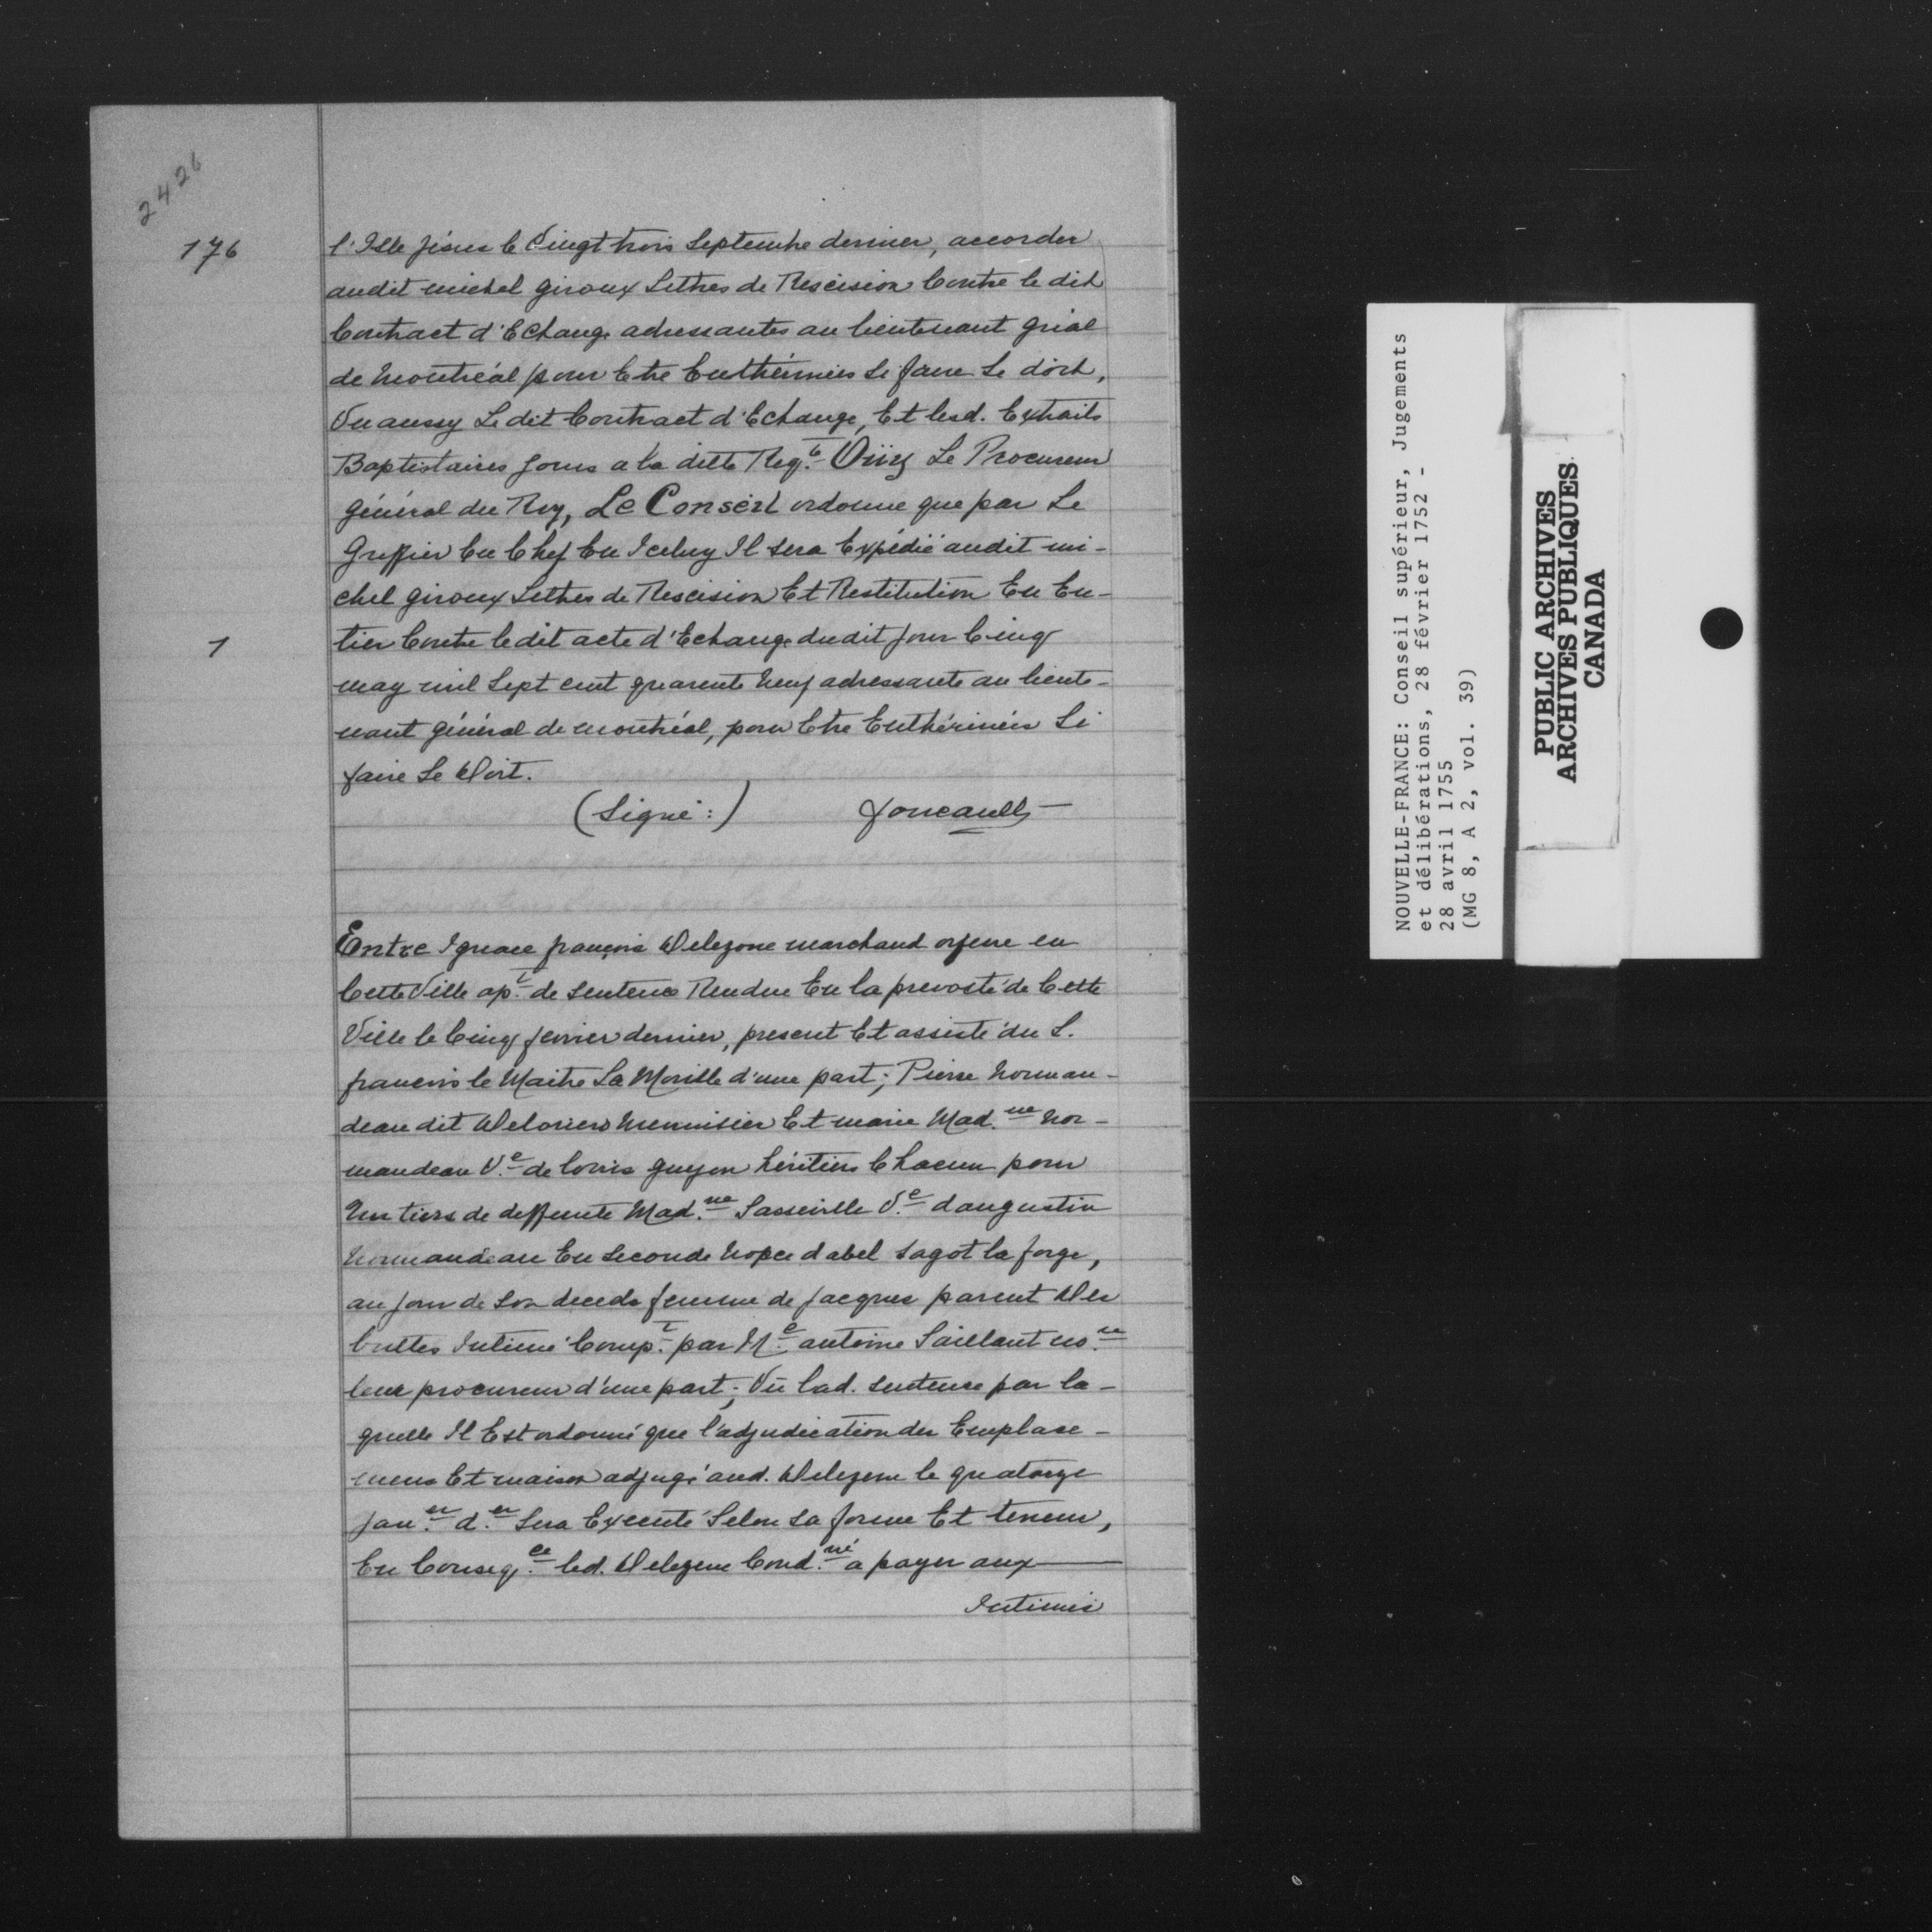 2426
176
l'Isle Jésus le Vingt trois Septembre dernier, accorder
audit michel giroux Lettres de Rescision Contre le dit
Contract d'Echange adressantes au lieutenant gñal
de Montréal pour Etre Enthérinées Si faire Se doit,
Vu aussy Le dit Contract d'Echange, Et lesd. Extraits
Baptistaires Joins a la ditte Reqte. Oüy Le Procureur
général du Roy, Le Conseil ordonne que par Le
Greffier En Chef En Iceluy Il sera Expédié audit mi-
chel giroux Lettres de Rescision Et Restitution En En-
1
tier Contre ledit acte d'Echange dudit jour Cinq
may mil Sept cent quarente Neuf adressante au lieute-
nant général de montréal, pour Etre Enthérinées Si
faire Se Doit.
(Signé:) Foucault
Entre Ignace françois Delezene marchand orfevre en
Cette Ville apt. de Sentence Rendue En la prevosté de Cette
Ville le Cinq fevrier dernier, present Et assisté du S.
francois le Maitre La Morille d'une part; Pierre Norman-
deau dit Deloriers Menuisier Et marie Mad.ne Nor-
mandeau V.e de louis guyon héritiers Chacun pour
Un tiers de deffunte Mad.ne Sasseville V.e daugustin
Normandeau En Seconde Nopce dabel Sagot la forge,
au jour de Son deceds femme de Jacques parent Des
buttes Intimé Compt. par M.e antoine Saillant no.re
leur procureur d'une part; Vû lad. Sentence par la-
quelle Il Est ordonné que l'adjudication des Emplace-
mens Et maison adjugé aud. Delezene le quatorze
Jan.er d.er Sera Executé Selon Sa forme Et teneur,
En Conseq.ce led. Delezene Cond.né a payer aux
Intimés
NOUVELLE-FRANCE: Conseil supérieur, Jugements
et délibérations, 28 février 1752 -
28 avril 1755
(MG 8, A 2, vol. 39)
PUBLIC ARCHIVES
ARCHIVES PUBLIQUES
CANADA